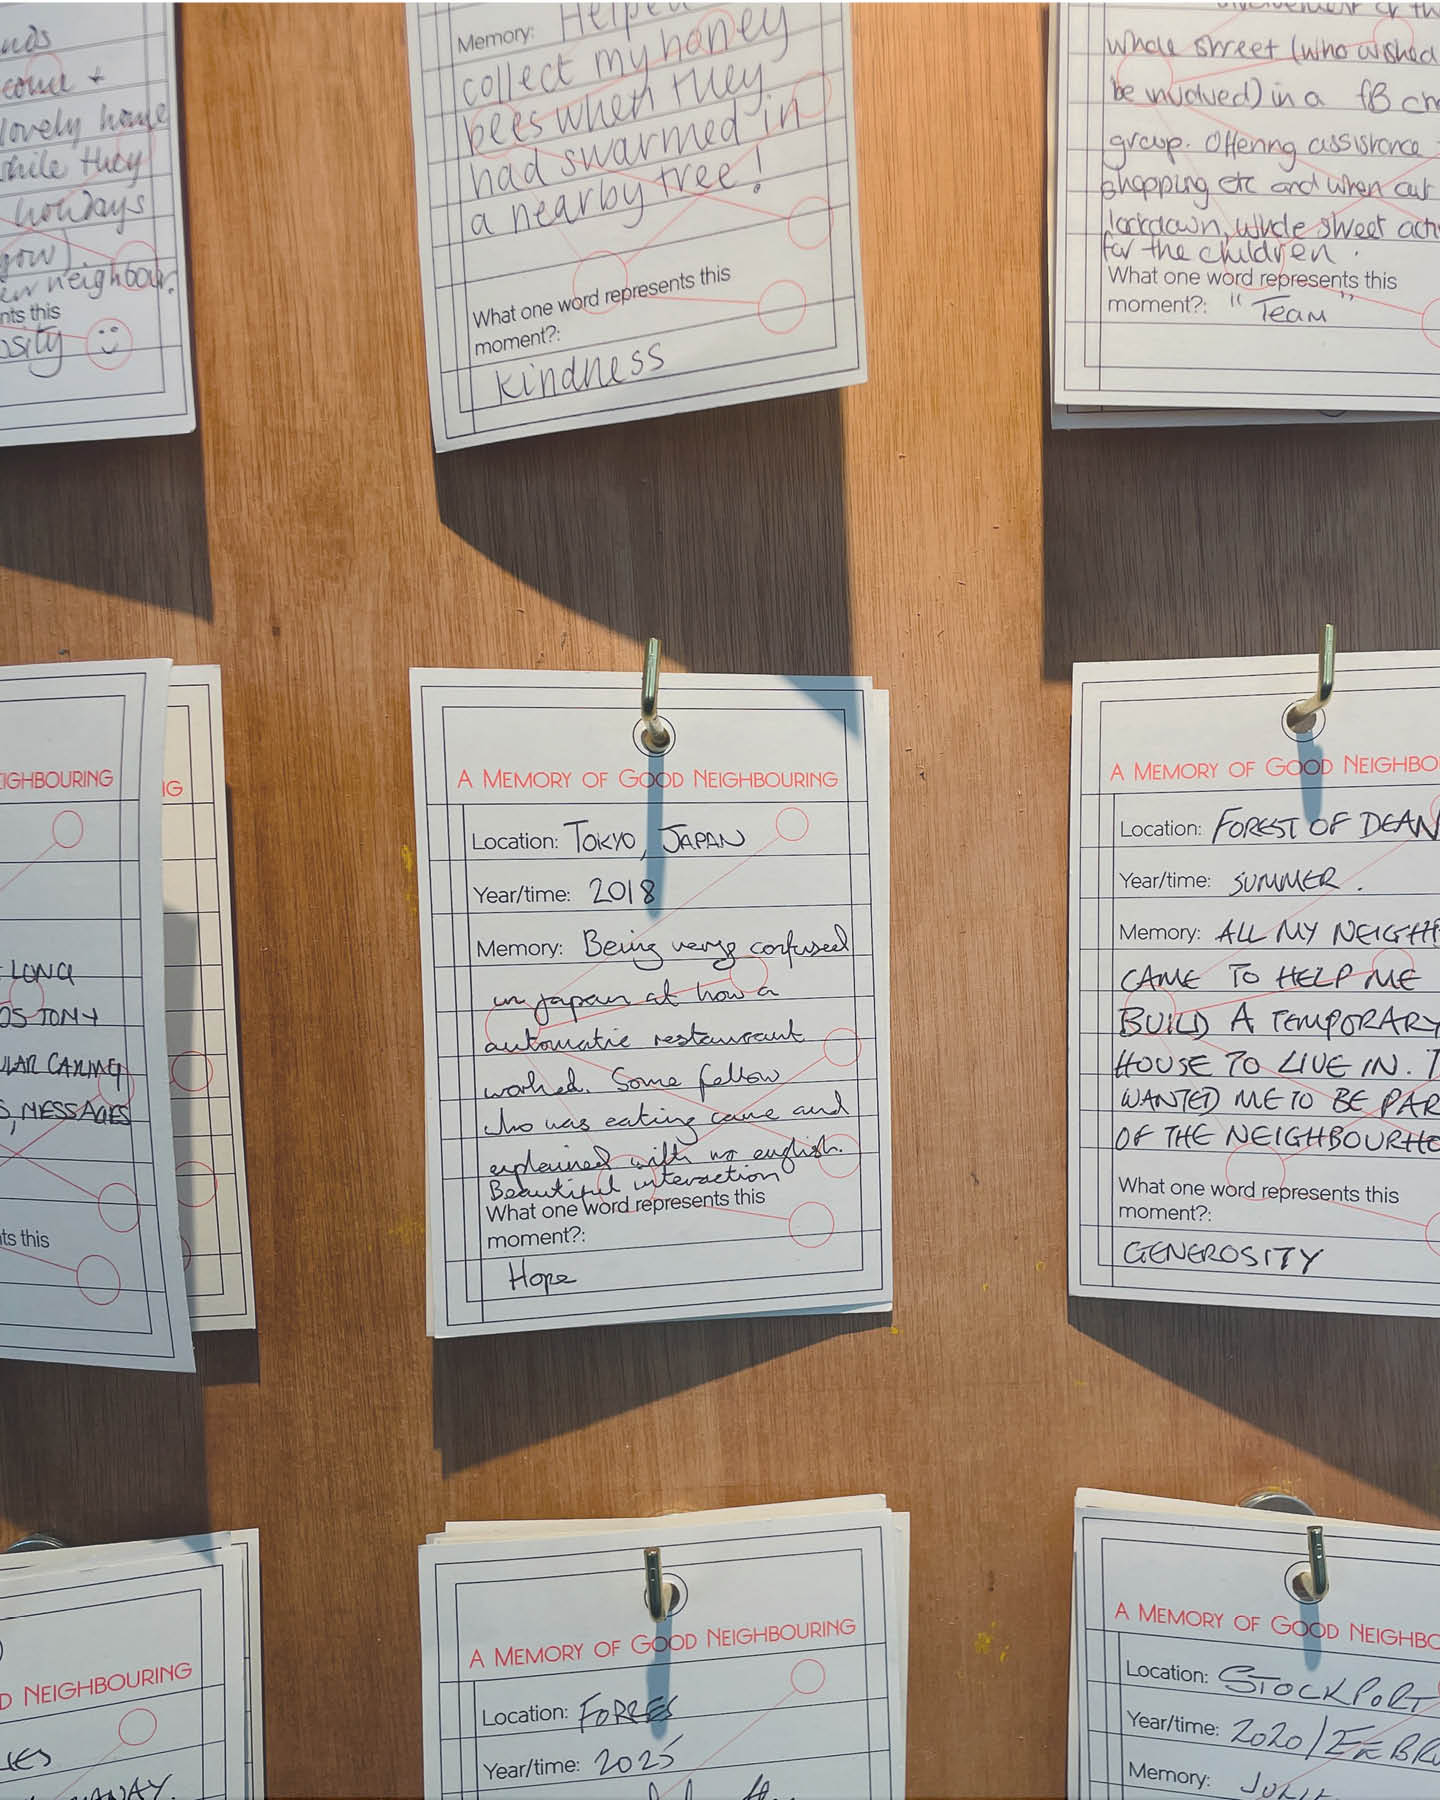 come +
lovely home
while they
holidays
neighbour.
this
Memory: Helped
collect my honey
bees when they
had swarmed in
a nearby tree!
What one word represents this
moment?:
Kindness
whole street (who wished
be involved) in a fB
group. Offering assistance
shopping etc and when out
lockdown, whole street
for the children.
What one word represents this
moment?: "Team"
LONG
TONY
MESSAGES
this
A MEMORY OF GOOD NEIGHBOURING
Location: TOKYO, JAPAN
Year/time: 2018
Memory: Being very confused
in Japan at how a
automatic restaurant
worked. Some fellow
who was eating came and
explained with no english.
Beautiful interaction
What one word represents this
moment?:
Hope
A MEMORY OF GOOD
Location: FOREST OF DEAN
Year/time: SUMMER.
Memory: ALL MY
CAME TO HELP ME
BUILD A TEMPORARY
HOUSE TO LIVE IN.
WANTED ME TO BE
OF THE
What one word represents this
moment?:
GENEROSITY
NEIGHBOURING
A MEMORY OF GOOD NEIGHBOURING
Location: FORRES
Year/time: 2025
A MEMORY OF GOOD
Location: STOCKPORT
Year/time: 2020/
Memory: